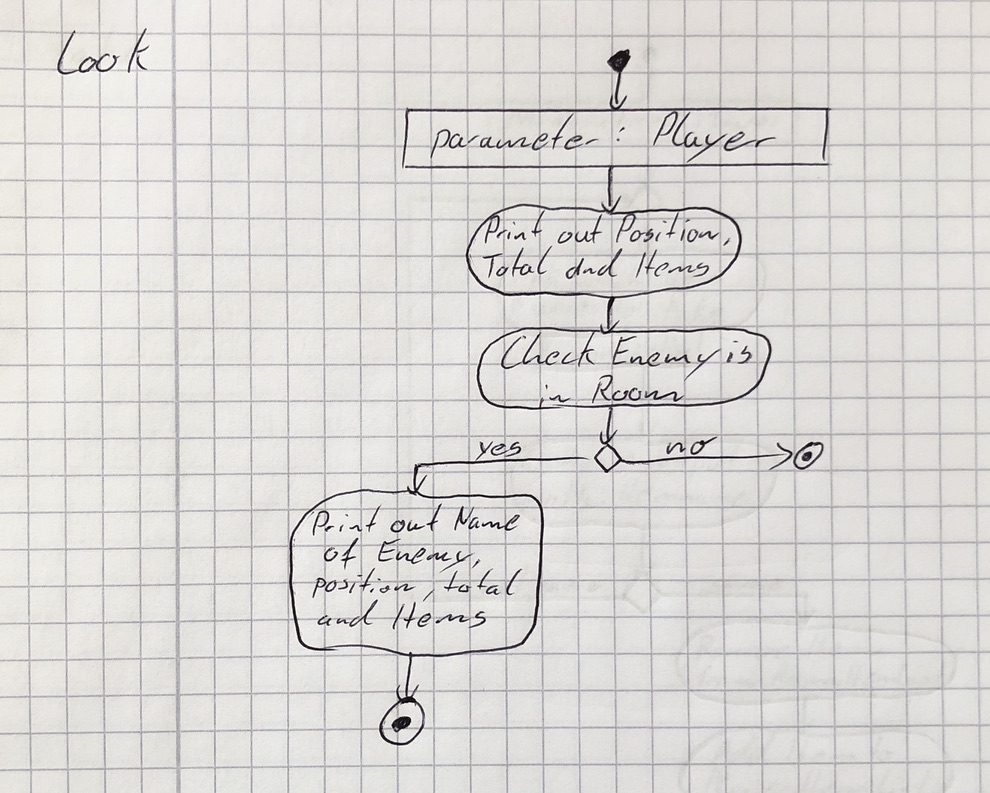 Look
parameter: Player
Print out Position,
Total and Items
Check Enemy is
in Room
yes
no
Print out Name
of Enemy,
position, total
and Items